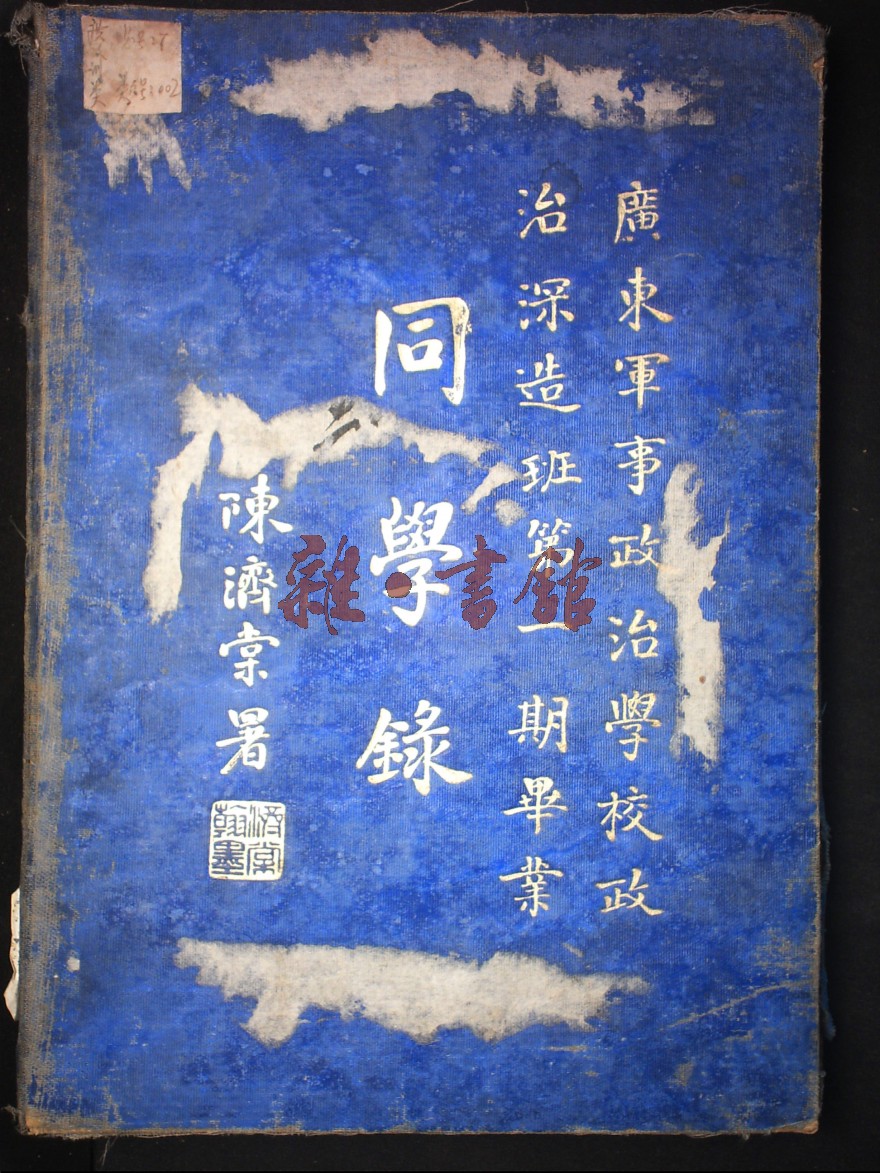 廣東軍事政治學校政
治深造班第一期畢業
同學錄
陳濟棠署
濟棠翰墨
雜·書館
002